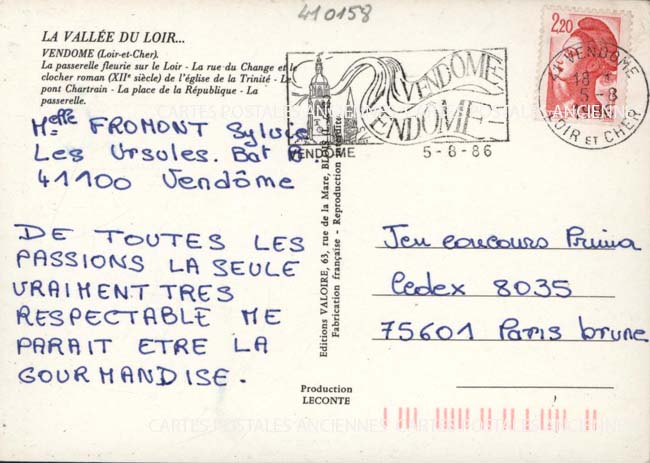 410158
LA VALLÉE DU LOIR...
VENDOME (Loir-et-Cher).
La passerelle fleurie sur le Loir - La rue du Change et le
clocher roman (XIIe siècle) de l'église de la Trinité - Le
pont Chartrain - La place de la République - La
passerelle.
Melle FROMONT Sylvie
Les Ursules. Bat B.
41100 Vendôme
DE TOUTES LES
PASSIONS LA SEULE
VRAIMENT TRES
RESPECTABLE ME
PARAIT ETRE LA
GOURMANDISE.
VENDÔME
VENDÔME
VENDOME
5-8-86
2,20
41 VENDOME
18 H
5-8
LOIR ET CHER
Editions VALOIRE, 63, rue de la Mare, BLOIS
Fabrication française - Reproduction interdite
Production
LECONTE
Jeu concours Prima
Cedex 8035
75601 Paris brune
CARTES POSTALES ANCIENNES
CARTES POSTALES ANCIENNES